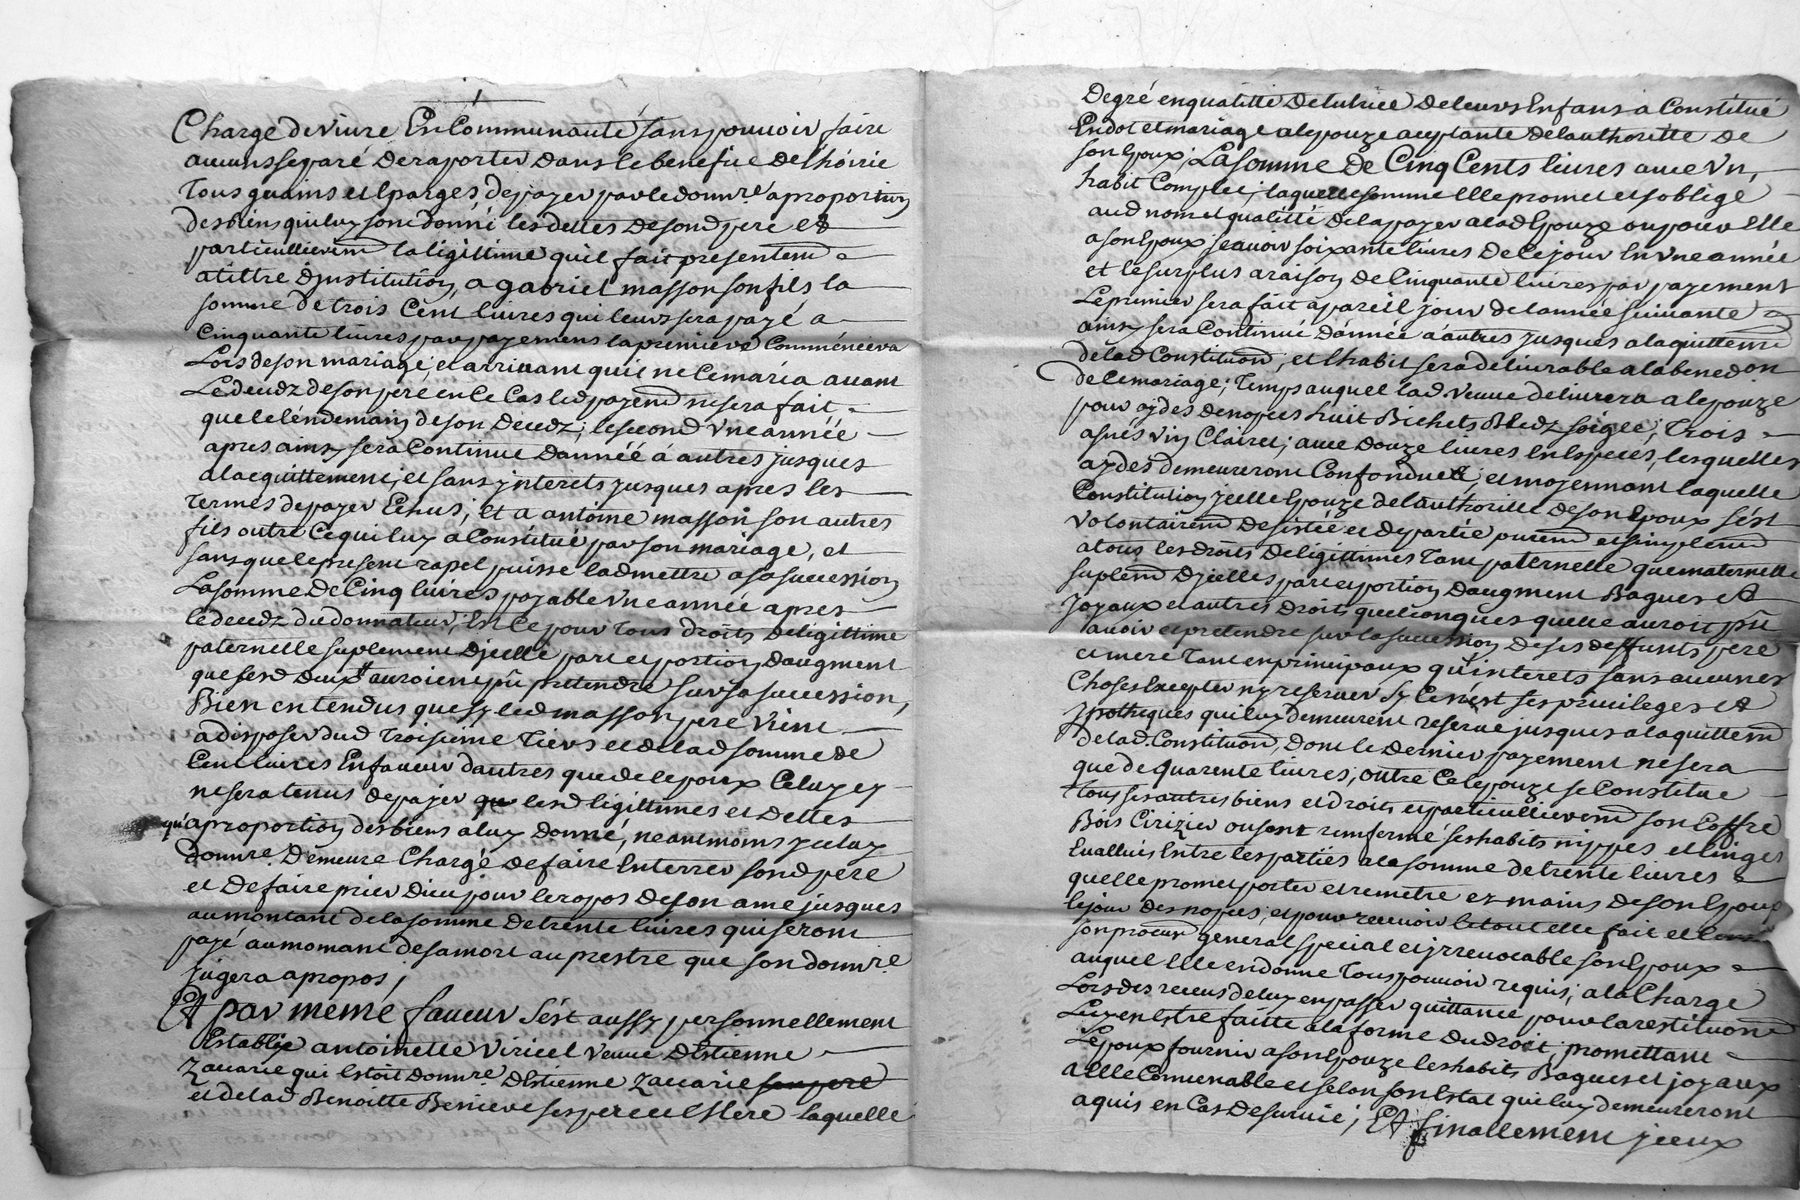 Charge de vivre En Communauté sans pouvoir faire
aucuns separé de raporter dans le benefice de L'hoirie
Tous guains et Epargés, de payer par le donnre. a proportion
des biens qui luy sont donné les dettes de sond pere et
particullierem la ligittime qu'il fait presentem a
a tiltre d'institution, a gabriel masson son fils la
somme de trois Cent livres qui leurs sera payé a
cinquante livres par payemens la premiere Commencera
Lors de son mariage, et arrivant qu'il ne ce maria avant
Le decedz de son peré en ce Cas led payem ne sera fait,
que le lendemain de son Decedz; le second Vne année
apres ainsy sera Continué D'année a autres jusques
a lacquittement, et sans ynterets jusques apres les
Termes de payer Echus; et a antoine masson son autres
fils outre Ce qui luy a Constitué par son mariage, et
sans que le present rapel puisse l'admettre a sa succession
La somme de Cinq livres payable Vne année apres
le decedz du donnateur, Et Ce pour Tous droits de ligittime
paternelle suplement d'jcelle part et portion d'augment
que sesd deux auroient pû pretendre sur sa succession,
Bien entendus que sy led masson pere Vient
a disposer dud Troisieme Tiers et de lad somme de
Cent livres En faveur d'autres que de lepoux Celuy cy
ne sera tenus de payer lesd ligittimes et Dettes
qu'a proportion des biens a luy Donné, neantmoins yceluy
donnre. Demeure Chargé de faire Enterrer sond pere
et de faire prier Dieu pour le repos de son ame jusques
au montant de la somme de trente livres qui seront
payé au momant de sa mort au prestre que son donnre.
jugera a propos,
Et par meme faveur s'ést aussy personnellement
Establye antoinette Viricel veuve d'Estienne
Zacarie qui Estoit donnre. d'Estienne Zacarie son pere
et de lad Benoitte ses pere et Mere laquelle
De gré en qualitté De tutrice de leurs Enfans a Constitué
En dot et mariage a lepouze aceptante de lauthoritté de
son Epoux; La somme De Cinq Cents livres avec Vn,
habit Complet, laquelle somme Elle promet et s'oblige
aud nom et qualitté de la payer a lad Epouze ou pour Elle
a son Epoux scavoir soixante livres de Ce jour En Vne année
et le surplus a raison de Cinquante livres par payement
Le premier sera fait a pareil jour de lannée suivante
ainsy sera Continué D'année a autres jusques a laquittem
de lad Constituon, et lhabit sera delivrable a la benedon
de Ce mariage; Temps auquel lad. Veuve delivrera a lepouze
pour aydes de nopces huit Bichets Bledz soigle; Trois
asnés Vin Clairet; avec Douze livres En Especes, lesquelles
aydes demeureront Confondues, et moyennant laquelle
Constitution jcelle Epouze de lauthoritté de son Epoux s'ést
Volontairem desistée et departie purem et simplem
a tous les droits de ligittimes Tant paternelle que maternelle
suplem d'jcelles part et portion d'augment Bagues et
Joyaux et autres droits quelconques quelle auroit pû
avoir et pretendre sur la succession de ses deffunts pere
et mere Tant en principaux qu'interets sans aucunes
Choses Excepter ny reserver sy Ce n'ést ses privileges et
ypotheques qui luy demeurent reservé jusques a laquittem
de lad. Constituon, dont le dernier payement ne sera
que de quarente livres; outre Ce lepouze se Constitue
Tous ses autres biens et droits et particullierem son Coffre
Bois Cirizier ou sont renfermé ses habits nippes et linges
Evallués Entre les parties a la somme de trente livres
quelle promet porter et remetre ez mains de son Epoux
le jour des nopces, et pour recevoir le tout elle fait et
son procur general special et jrrevocable son Epoux
auquel Elle en donne Tous pouvoir requis, a la Charge
Lors des receus de luy en passer quittance pour la restituon
Luy en Estre faitte a la forme Du droit; promettant
Lepoux fournir a son Epouze les habits, Bagues et joyaux
a Elle Convenable et selon son Estat qui luy demeureront
aquis en Cas De survie; Et finallement jceux